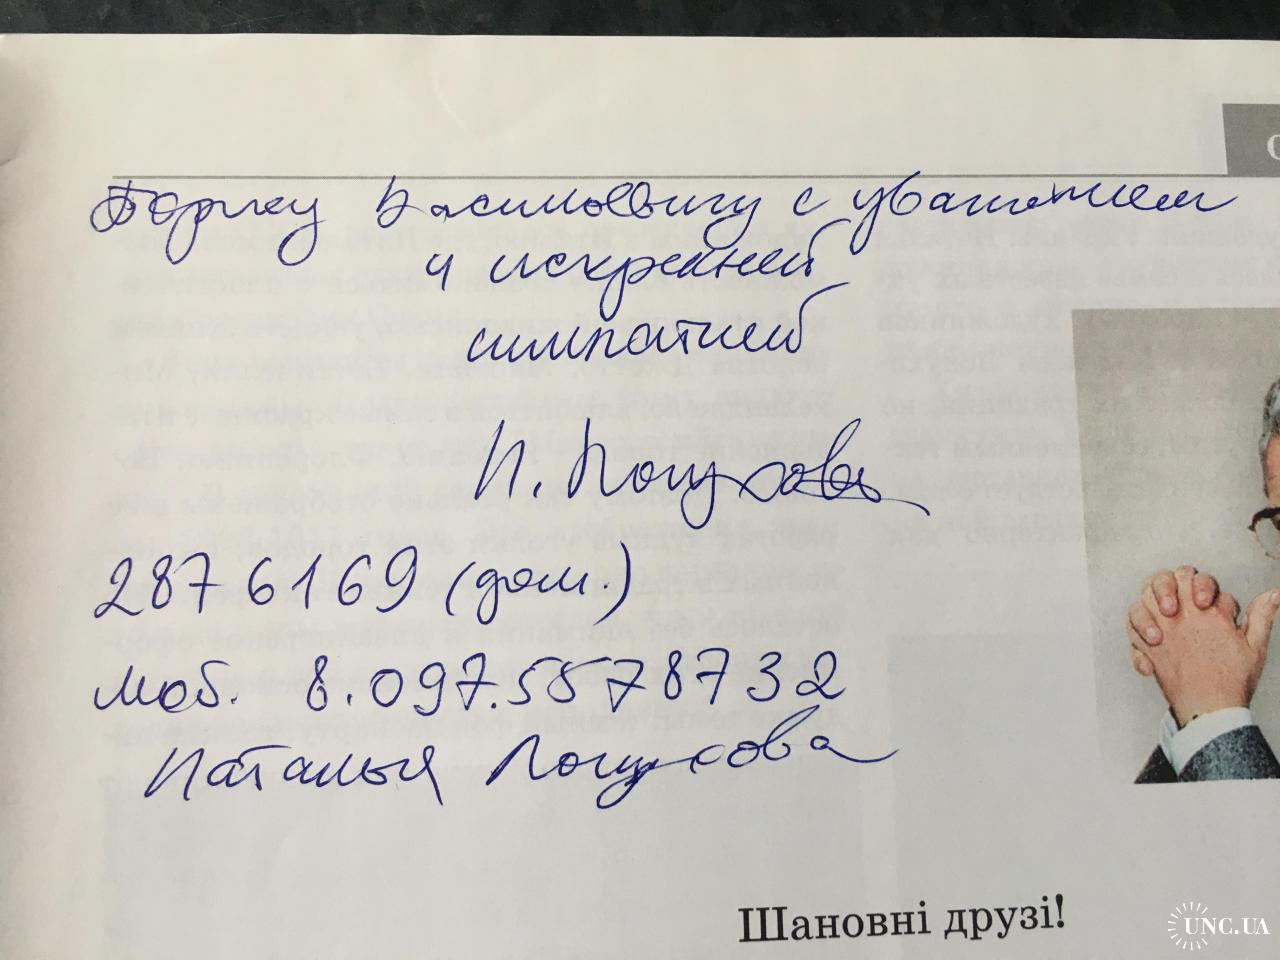 Борису Васильевичу с уважением
и искренней
симпатией
Н. Лопухова
2876169 (дом.)
моб. 8.097.5578732
Наталья Лопухова
Шановні друзі!
UNC.UA